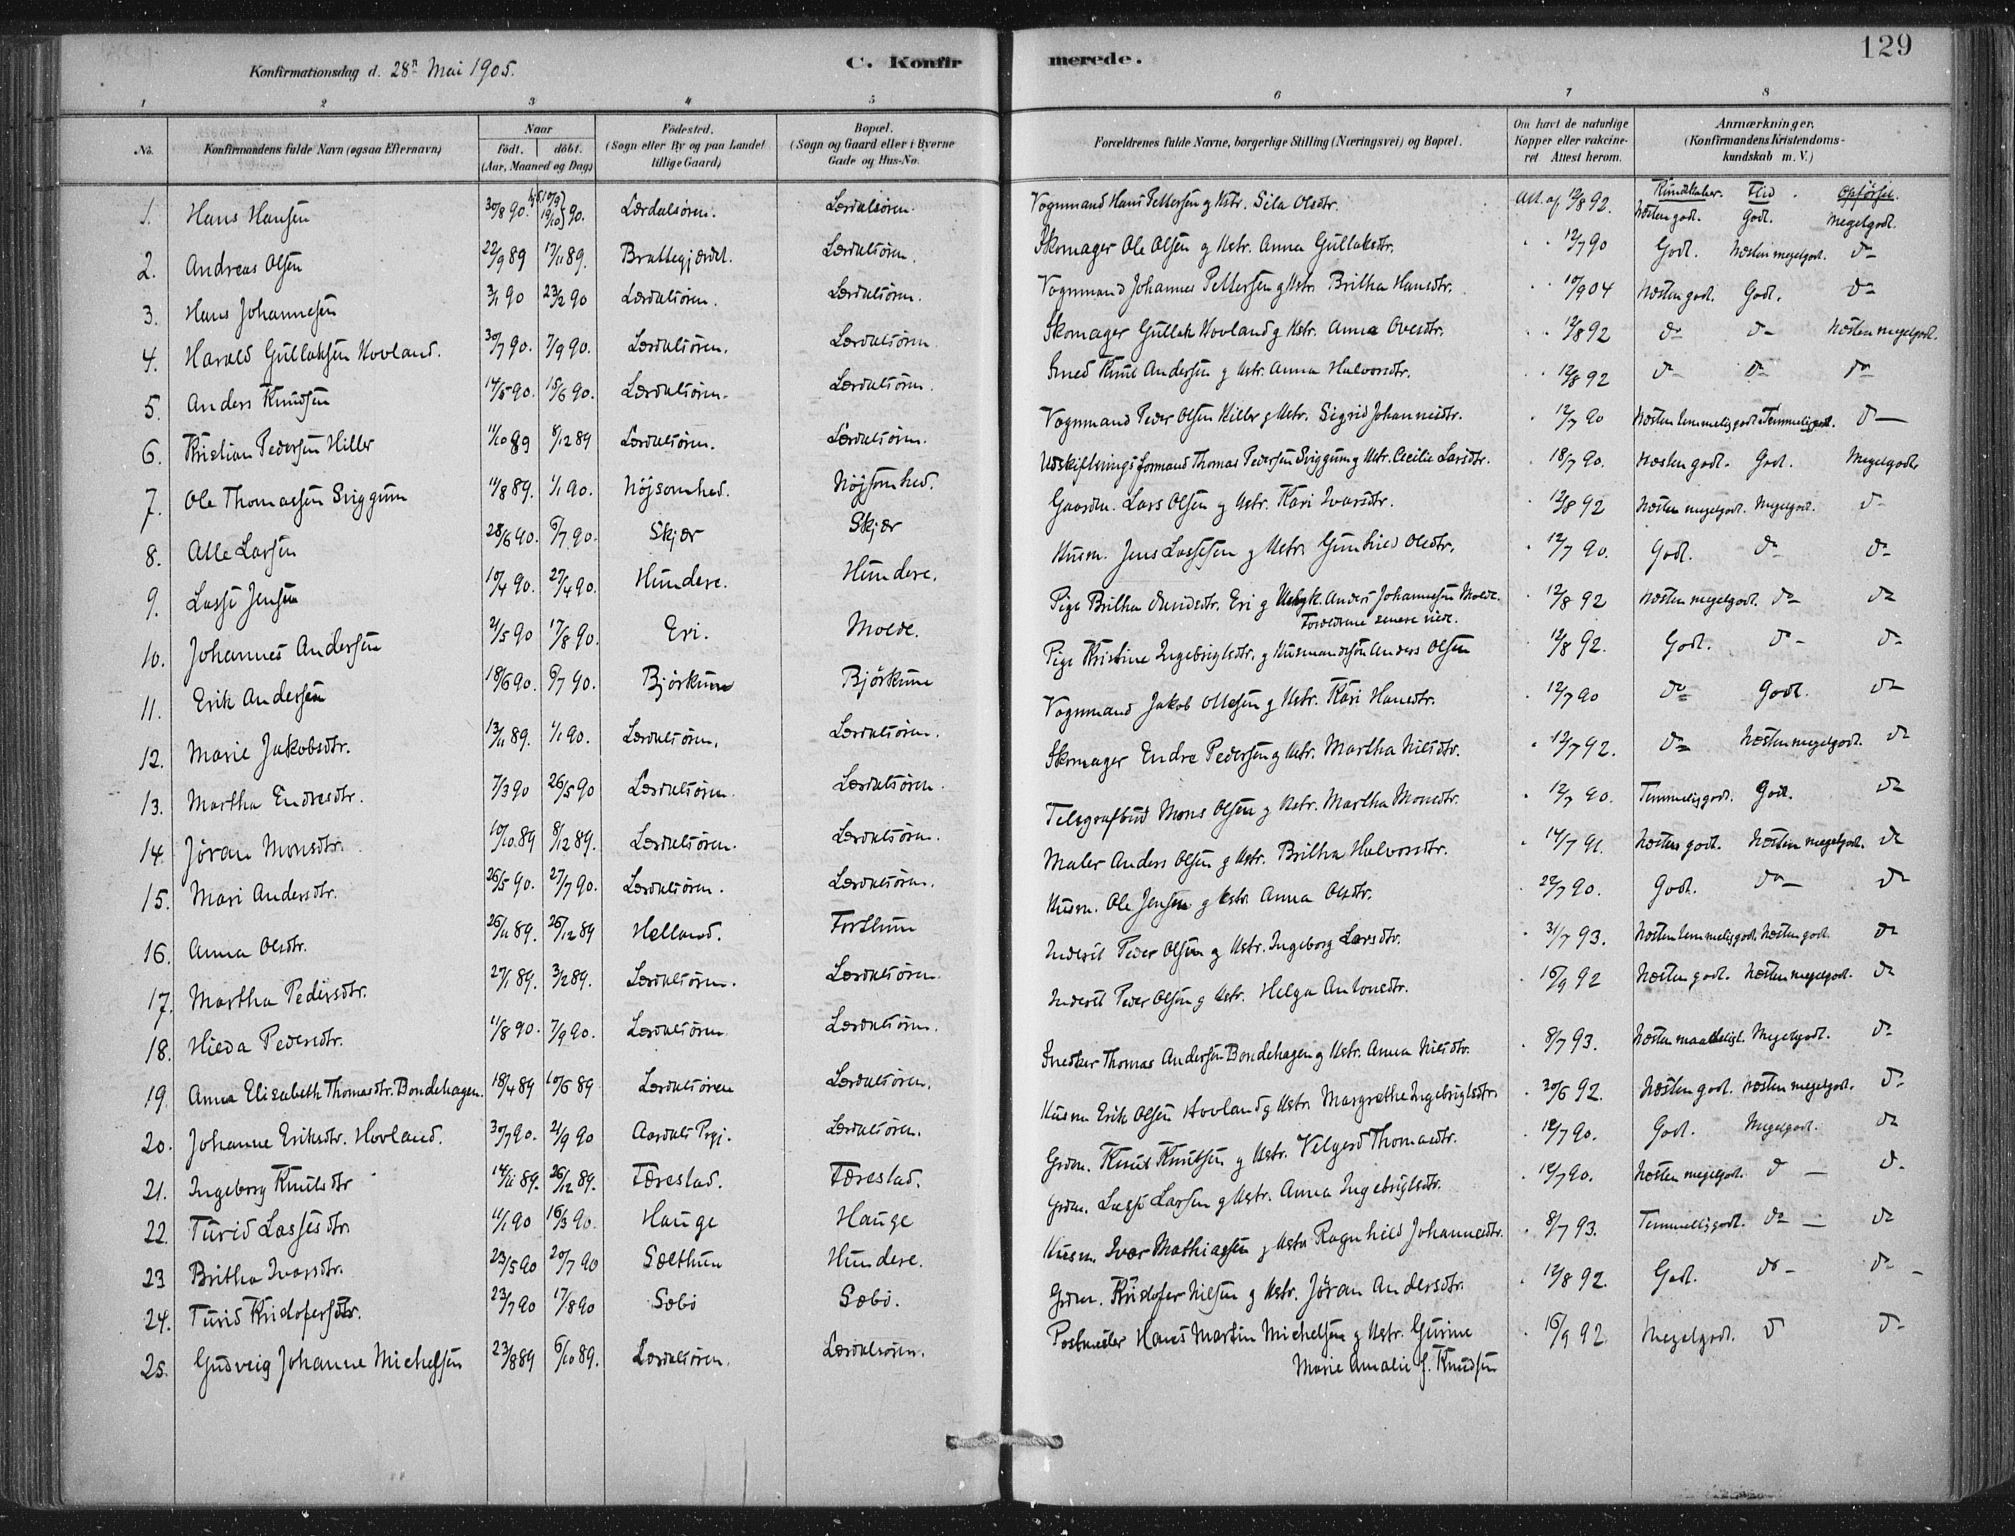 129
Konfirmationsdag d. 28n Mai 1905.
C. Konfirmerede.
1 2 3 4 5 6 7 8
No. Konfirmandens fulde Navn (ogsaa Efternavn) Naar födt. döbt. (Aar, Maaned og Dag) Födested. (Sogn eller By og paa Landet tillige Gaard) Bopæl. (Sogn og Gaard eller i Byerne Gade og Hus-No. Forældrenes fulde Navne, borgerlige Stilling (Næringsvei) og Bopæl. Om havt de naturlige Kopper eller vakcineret. Attest herom. Anmærkninger. (Konfirmandens Kristendomskundskab m. V.)
Kundskaber. Flid. Opførsel.
1. Hans Hansen 30/8 90. 19/10 90. Lærdalsören. Lærdalsören. Vognmand Hans Pettersen g Hstr. Sila Olsdtr. Att. af 12/8 92. Næsten godt. Godt. Megetgodt.
2. Andreas Olsen 22/9 89 17/11 89. Brattegjærdet. Lærdalsören. Skomager Ole Olsen g Hstr. Anna Gullaksdtr. " " 12/7 90 Godt. Næsten megetgodt. do
3. Hans Johannesen 3/1 90 23/2 90 Lærdalsören. Lærdalsören. Vognmand Johannes Pettersen g Hstr. Britha Hansdtr. " " 10/9 04 Næsten godt. Godt. do
4. Harald Gullaksen Hovland. 30/7 90. 7/9 90. Lærdalsören. Lærdalsören. Skomager Gullak Hovland g Hstr. Anna Ovesdtr. " " 12/8 92 do do Næsten megetgodt.
5. Anders Knudsen 14/5 90. 15/6 90. Lærdalsören. Lærdalsören. Smed Knut Andersen g Hstr. Anna Halvorsdtr. " " 12/8 92 do do do
6. Kristian Pedersen Hiller 11/10 89 8/12 89 Lærdalsören. Lærdalsören. Vognmand Peder Olsen Hiller g Hstr. Sigrid Johannesdtr. " 12/7 90 Næsten temmeligodt. Temmeligodt. do
7. Ole Thomassen Sviggum 11/8 89. 1/1 90. Nöjsomhed. Nöjsomhed. Udskiftningsformand Thomas Pedersen Sviggum g Hstr. Cecilie Larsdtr. " 18/7 90. Næsten godt. Godt. Megetgodt
8. Atle Larsen 28/6 90. 6/7 90. Skjær Skjær Gaardm. Lars Olsen g Hstr. Kari Ivarsdtr. " 12/8 92 Næsten megetgodt. Megetgodt. do
9. Lasse Jensen 10/4 90. 27/4 90. Hundere. Hundere. Husm. Jens Lassesen g Hstr. Gunhild Olsdtr. " 12/7 90. Godt. do do
10. Johannes Andersen 21/5 90 17/8 90. Eri. Molde. Pige Britha Eri g Ungk. Anders Johannesen Molde. Forældrene senere viet. " 12/8 92 Næsten megetgodt. do do
11. Erik Andersen 18/6 90. 6/7 90. Bjørkum Bjørkum Pige Kristine Ingebrigtsdtr. g Husmandssön Anders Olsen " 12/8 92. Godt. do do
12. Marie Jakobsdtr. 13/11 89. 1/1 90. Lærdalsören. Lærdalsören. Vognmand Jakob Olsen g Hstr. Kari Hansdtr. " 12/7 90 do Godt. do
13. Martha Endresdtr. 7/3 90 26/5 90 Lærdalsören. Lærdalsören. Skomager Endre Pedersen g Hstr. Martha Nilsdtr. " 12/7 92. do Næsten megetgodt. do
14. Jøran Monsdtr. 10/10 89 8/12 89. Lærdalsören. Lærdalsören. Telegrafbud Mons Olsen g Hstr. Martha Monsdtr. " 12/7 90. Temmeligodt. Godt. do
15. Mari Andersdtr. 26/5 90. 27/7 90. Lærdalsören. Lærdalsören. Maler Anders Olsen g Hstr. Britha Halvorsdtr. " 14/7 91. Næsten godt. Næsten megetgodt. do
16. Anna Olsdtr. 26/11 89. 26/12 89 Helland. Forthun Husm. Ole Jensen g Hstr. Anna Olsdtr. " 22/7 90. Godt. do do
17. Martha Pedersdtr. 27/1 89. 3/2 89. Lærdalsören. Lærdalsören. Inderst Peder Olsen g Hstr. Ingeborg Larsdtr. " 31/7 93. Næsten temmeligodt. Næsten godt. do
18. Hilda Pedersdtr. 11/8 90. 7/9 90. Lærdalsören Lærdalsören. Inderst Peder Olsen g Hstr. Helga Antonsdtr. " 16/9 92 Næsten godt. Næsten megetgodt. do
19. Anna Elisabeth Thomasdtr. Bondehagen. 18/4 89 10/6 89. Lærdalsören Lærdalsören. Snedker Thomas Andersen Bondehagen g Hstr. Anna Nilsdtr. " 8/7 93. Næsten maadeligt. Megetgodt. do
20. Johanne Eriksdtr. Hovland. 30/7 90. 21/9 90 Aardals Prgj. Lærdalsören. Husm Erik Olsen Hovland g Hstr. Margrethe Ingebrigtsdtr. " 20/6 92. Næsten godt. Næsten megetgodt. do
21. Ingeborg Knutsdtr 14/11 89. 26/12 89. Færestad. Færestad. Grdm. Knut Knutsen g Hstr. Velgerd Thomasdtr. " 12/7 90. Godt. Megetgodt. do
22. Turid Lassesdtr. 11/1 90 16/3 90. Hauge Hauge Grdm. Lasse Larsen g Hstr. Anna Ingebrigtsdtr. " 12/7 90. Næsten megetgodt. do do
23 Britha Ivarsdtr. 23/5 90 20/7 90 Sælthun Hundere. Husm. Ivar Mathiassen g Hstr Ragnhild Johannesdtr. " 8/7 93. Temmeligodt. do do
24. Turid Kristofersdtr. 23/7 90 17/8 90 Sæbö Sæbö. Grdm. Kristofer Nilsen g Hstr. Jöran Andersdtr. " 12/8 92. Godt. do do
25. Gudveig Johanne Michelsen 23/8 89 6/10 89. Lærdalsören. Lærdalsören. Postmester Hans Martin Michelsen g Hstr. Gurine Marie Amalie f. Knudsen " 16/9 92. Megetgodt. do do